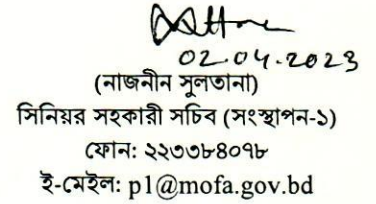 02.04.2023
(নাজনীন সুলতানা)
সিনিয়র সহকারী সচিব (সংস্থাপন-১)
ফোন: ২২৩৩৮৪০৭৮
ই-মেইল: p1@mofa.gov.bd